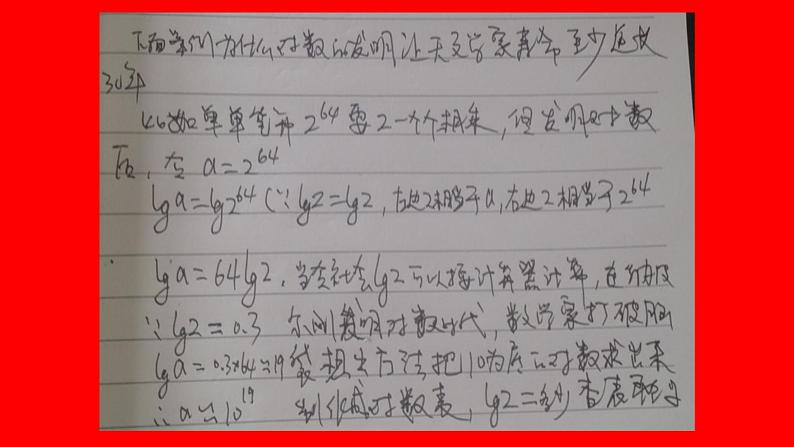 下面举例为什么对数的发明让天文学家寿命至少延长
30年
比如单单笔算2^64要2一个个相乘，但发明对数
后，令 a=2^64
lga=lg2^64 (∵lg2=lg2，左边2相当于a，右边2相当于2^64
lga=64lg2，当今社会lg2可以按计算器计算，在纳皮
∵lg2≈0.3 尔刚发明对数时代，数学家打破脑
lga=0.3×64≈19 袋想出方法把10为底的对数求出来
∴a≈10^19 制作成对数表，lg2=多少查表